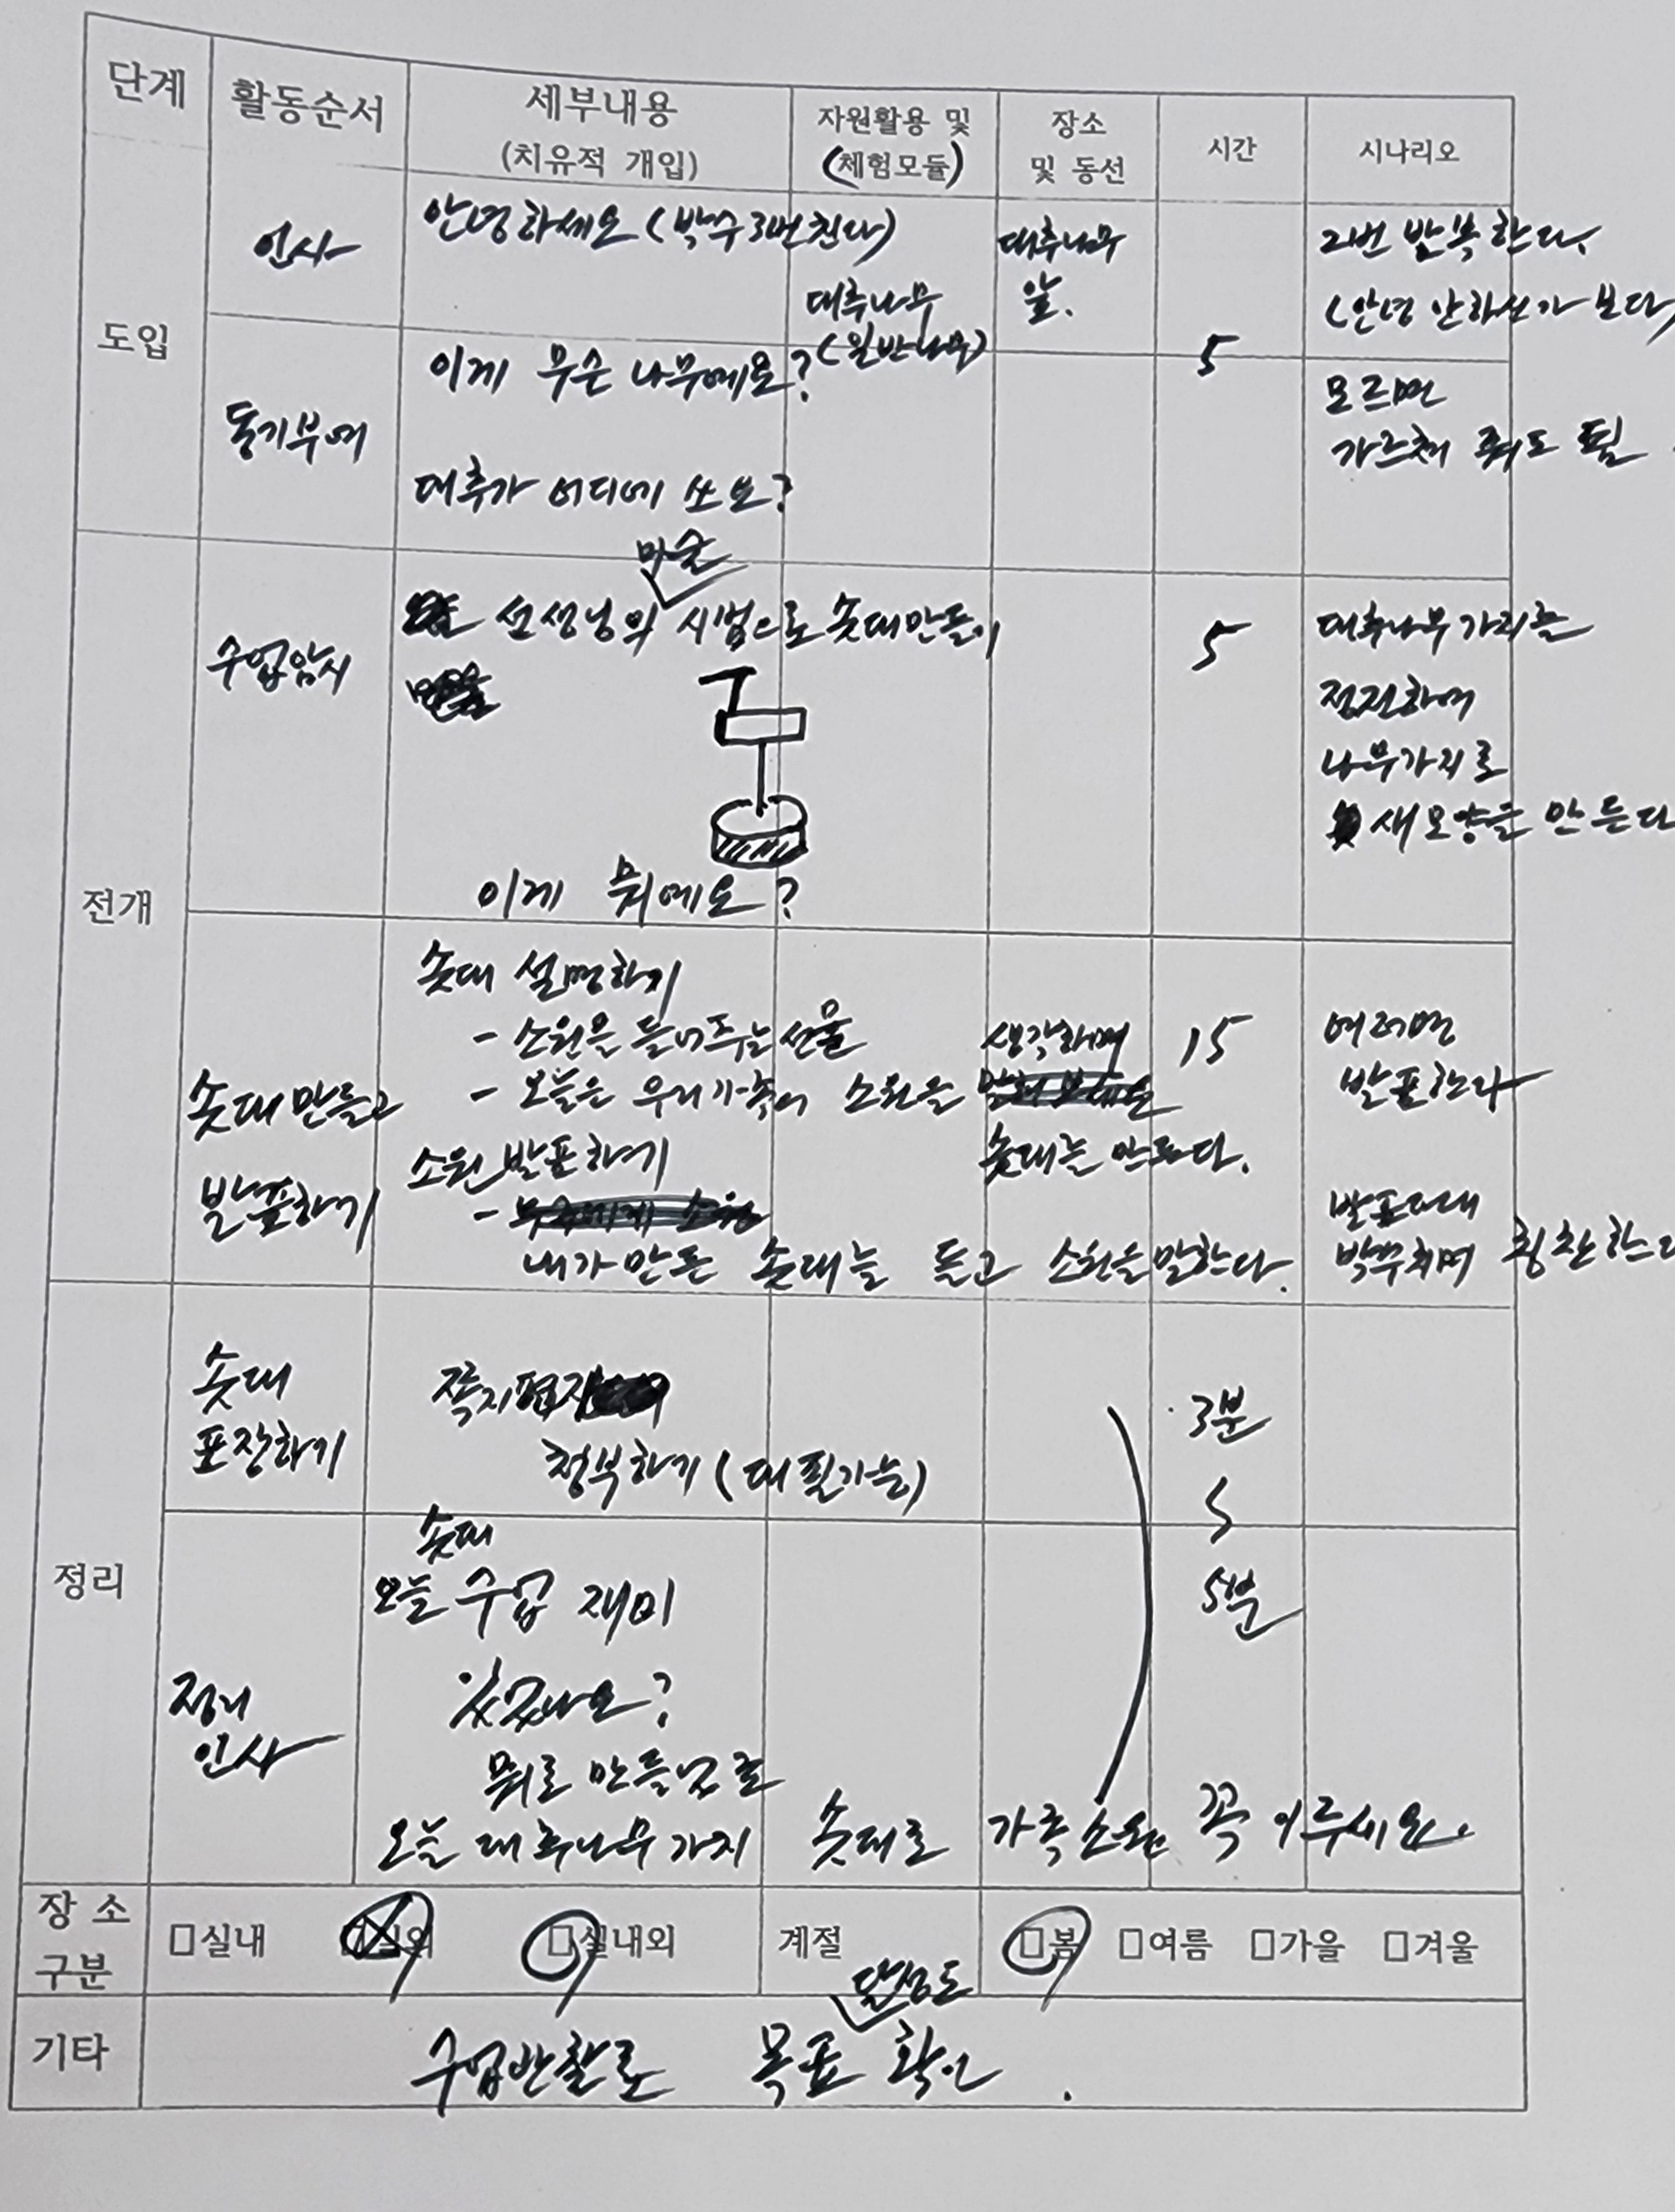 단계 활동순서 세부내용 (치유적 개입) 자원활용 및 (체험모듈) 장소 및 동선 시간 시나리오
도입
인사
안녕하세요 (박수 3번친다)
대추나무
(일반나무)
대추나무
앞.
5
2번 반복한다.
(안녕 안하신가 보다)
동기부여
이게 무슨 나무에요?
대추가 어디에 쓰요?
모르면
가르쳐 줘도 됨
전개
수업암시
마술
선생님의 시범으로 솟대만들기
이게 뭐에요?
5
대추나무가지를
전전하여
나무가지로
새모양을 만든다
솟대만들고
발표하기
솟대 설명하기
- 소원을 들어주는 선물
- 오늘은 우리가족의 소원을 생각하며
솟대를 만든다.
소원 발표하기
- 내가만든 솟대를 들고 소원을말한다.
15
여러명
발표한다
발표마다
박수치며 칭찬한다
정리
솟대
포장하기
쪽지편지
첨부하기 (대필가능)
3분
5
5분
정리
인사
솟대
오늘 수업 재미
있었나요?
뭐로 만들었죠
오늘 대추나무가지 솟대로 가족소원 꼭 이루세요.
장소
구분
□실내 □실외 □실내외 계절 □봄 □여름 □가을 □겨울
기타
달성도
수업반찰로 목표 확인.